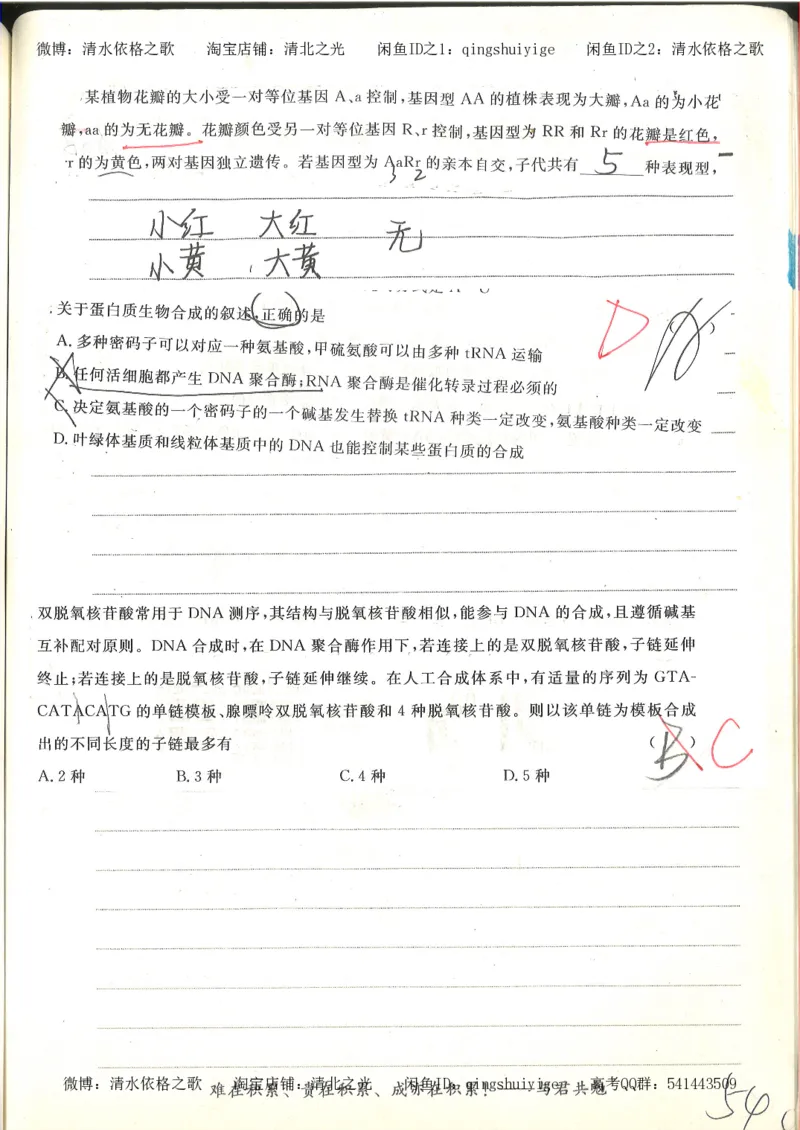 微博：清水依格之歌　淘宝店铺：清北之光　闲鱼ID之1：qingshuiyige　闲鱼ID之2：清水依格之歌
某植物花瓣的大小受一对等位基因 A、a 控制，基因型 AA 的植株表现为大瓣，Aa 的为小花
瓣，aa 的为无花瓣。花瓣颜色受另一对等位基因 R、r 控制，基因型为 RR 和 Rr 的花瓣是红色，
r 的为黄色，两对基因独立遗传。若基因型为 AaRr 的亲本自交，子代共有 5 种表现型，
3 2
小红 大红 无
小黄 大黄
关于蛋白质生物合成的叙述，正确的是
D
A. 多种密码子可以对应一种氨基酸，甲硫氨酸可以由多种 tRNA 运输
B. 任何活细胞都产生 DNA 聚合酶；RNA 聚合酶是催化转录过程必须的
C. 决定氨基酸的一个密码子的一个碱基发生替换 tRNA 种类一定改变，氨基酸种类一定改变
D. 叶绿体基质和线粒体基质中的 DNA 也能控制某些蛋白质的合成
双脱氧核苷酸常用于 DNA 测序，其结构与脱氧核苷酸相似，能参与 DNA 的合成，且遵循碱基
互补配对原则。DNA 合成时，在 DNA 聚合酶作用下，若连接上的是双脱氧核苷酸，子链延伸
终止；若连接上的是脱氧核苷酸，子链延伸继续。在人工合成体系中，有适量的序列为 GTA-
CATACATG 的单链模板、腺嘌呤双脱氧核苷酸和 4 种脱氧核苷酸。则以该单链为模板合成
出的不同长度的子链最多有 （ B ） C
A. 2 种 B. 3 种 C. 4 种 D. 5 种
微博：清水依格之歌　淘宝店铺：清北之光　闲鱼ID：qingshuiyige　高考QQ群：541443509
难在积累、贵在积累、成亦在积累！——与君共勉
54